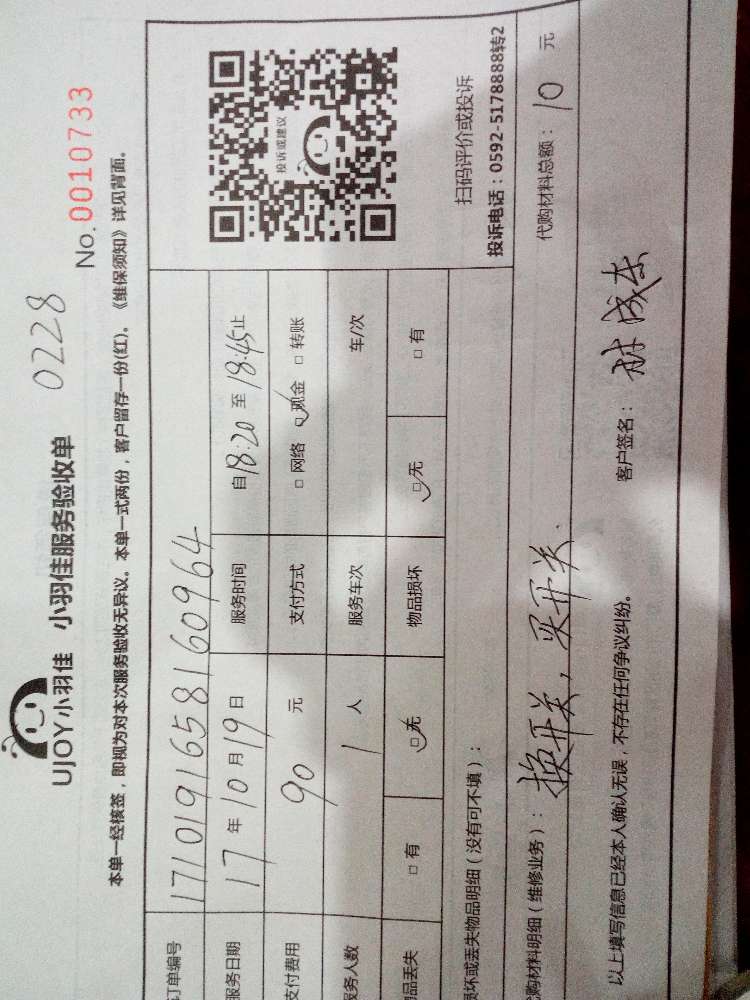 UJOY小羽佳 小羽佳服务验收单 0228
No.0010733
本单一经核签，即视为对本次服务验收无异议。本单一式两份，客户留存一份(红)。《维保须知》详见背面。
订单编号 17101916581609​64
服务日期 17年10月19日 服务时间 自18:20至18:45止
支付费用 90元 支付方式 □网络 □现金 □转账
服务人数 1人 服务车次 车/次
物品丢失 □有 □无 物品损坏 □无 □有
投诉或建议
扫码评价或投诉
投诉电话：0592-5178888转2
损坏或丢失物品明细（没有可不填）：
代购材料明细（维修业务）：换开关，买开关. 代购材料总额：10元
以上填写信息已经本人确认无误，不存在任何争议纠纷。 客户签名：